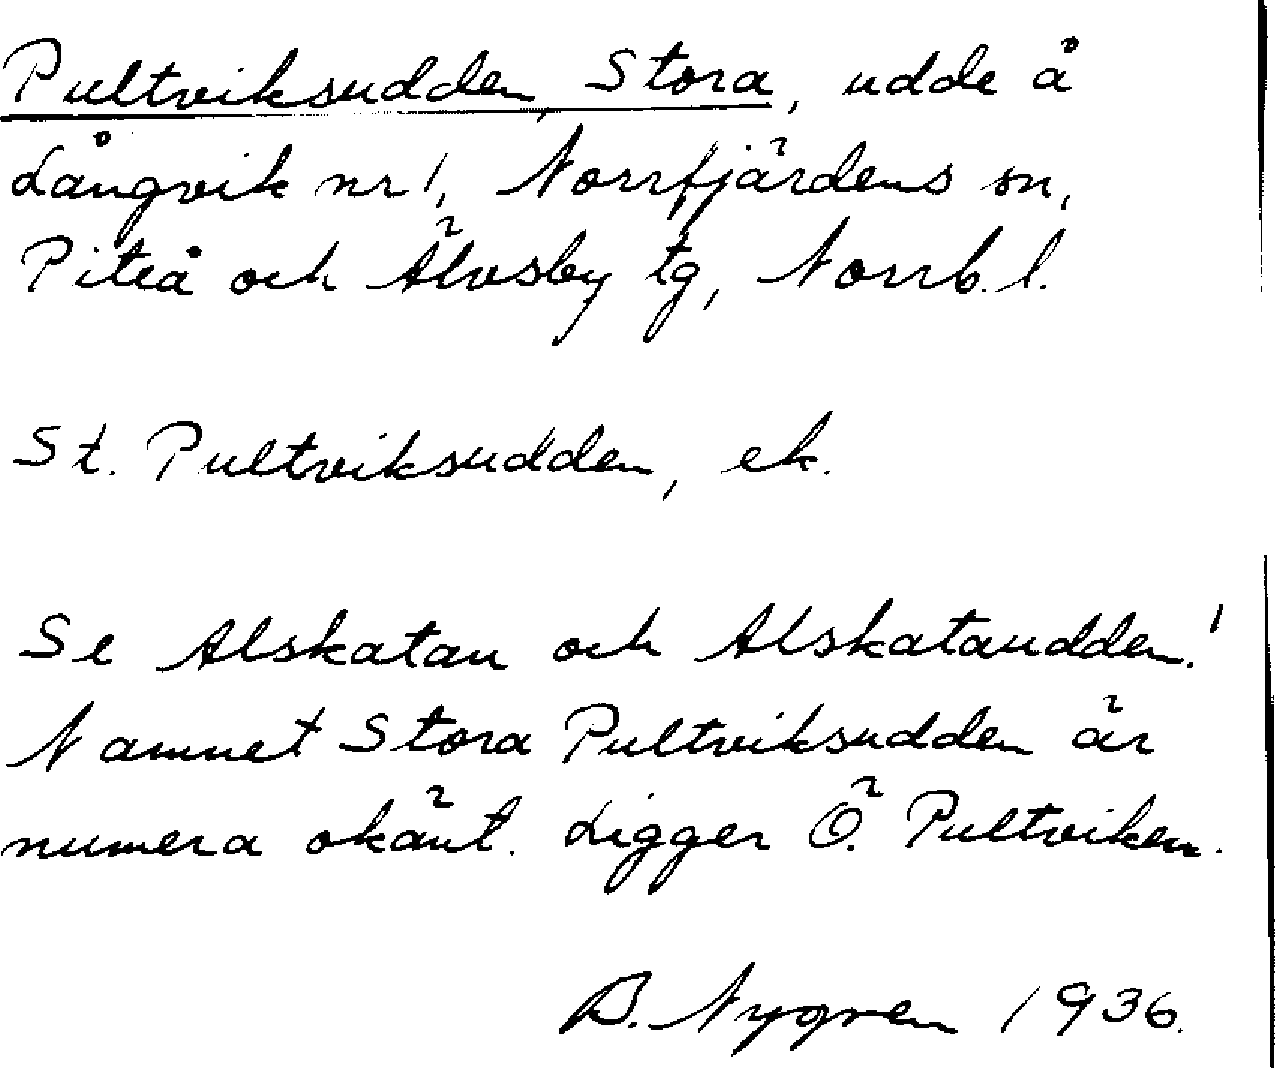 Pultviksudden, Stora, udde å
Långvik nr 1, Norrfjärdens sn,
Piteå och Älvsby tg, Norrb. l.
St. Pultviksudden, ek.
Se Alskatan och Alskataudden!
Namnet Stora Pultviksudden är
numera okänt. Ligger Ö. Pultviken.
B. Nygren 1936.